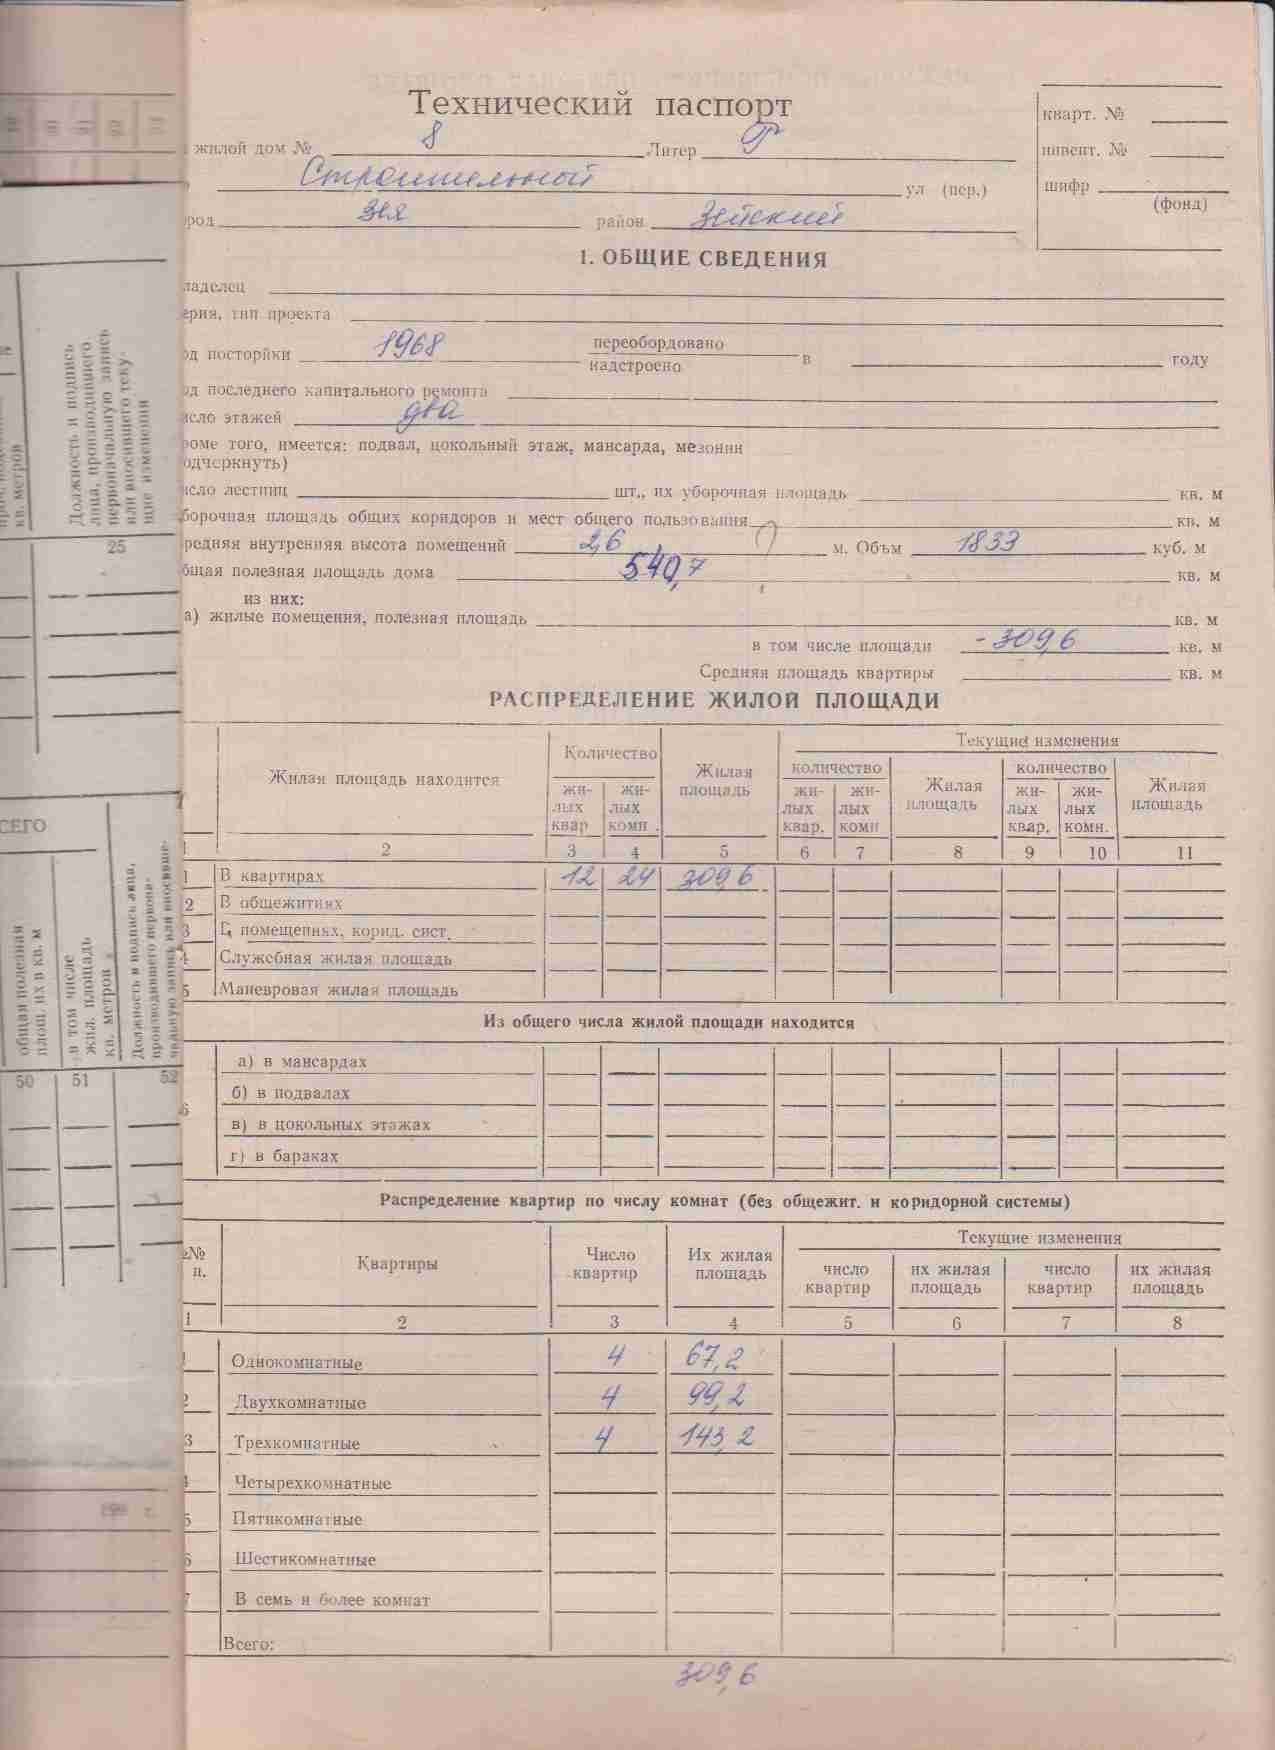 Технический паспорт
жилой дом № 8 Литер Г
Строительный ул (пер.)
род Зея район Зейский
кварт. №
инвент. №
шифр
(фонд)
1. ОБЩИЕ СВЕДЕНИЯ
ладелец
ерия, тип проекта
од посторйки 1968 переобордовано надстроено в году
од последнего капитального ремонта
исло этажей два
роме того, имеется: подвал, цокольный этаж, мансарда, мезонин
одчеркнуть)
исло лестниц шт., их уборочная площадь кв. м
борочная площадь общих коридоров и мест общего пользования кв. м
редняя внутренняя высота помещений 2,6 м. Объм 1833 куб. м
бщая полезная площадь дома 540,7 кв. м
из них:
а) жилые помещения, полезная площадь кв. м
в том числе площади - 309,6 кв. м
Средняя площадь квартиры кв. м
РАСПРЕДЕЛЕНИЕ ЖИЛОЙ ПЛОЩАДИ
Жилая площадь находится
Количество
жи-
лых
квар
жи-
лых
комн.
Жилая
площадь
Текущие изменения
количество
жи-
лых
квар.
жи-
лых
комн
Жилая
площадь
количество
жи-
лых
квар.
жи-
лых
комн.
Жилая
площадь
1 2 3 4 5 6 7 8 9 10 11
1 В квартирах 12 24 309,6
2 В общежитиях
3 В помещениях, корид. сист.
4 Служебная жилая площадь
5 Маневровая жилая площадь
Из общего числа жилой площади находится
6
а) в мансардах
б) в подвалах
в) в цокольных этажах
г) в бараках
Распределение квартир по числу комнат (без общежит. и коридорной системы)
№№
п.
Квартиры
Число
квартир
Их жилая
площадь
Текущие изменения
число
квартир
их жилая
площадь
число
квартир
их жилая
площадь
1 2 3 4 5 6 7 8
1 Однокомнатные 4 67,2
2 Двухкомнатные 4 99,2
3 Трехкомнатные 4 143,2
4 Четырехкомнатные
5 Пятикомнатные
6 Шестикомнатные
7 В семь и более комнат
Всего:
309,6
кв. метров
Должность и подпись
лица, производившего
первоначальную запись
или вносившего теку-
щие изменения
25
СЕГО
общая полезная
площ. их в кв. м
в том числе
жил. площадь
кв. метров
Должность и подпись лица,
производившего первона-
чальную запись или вносивше-
50 51 52